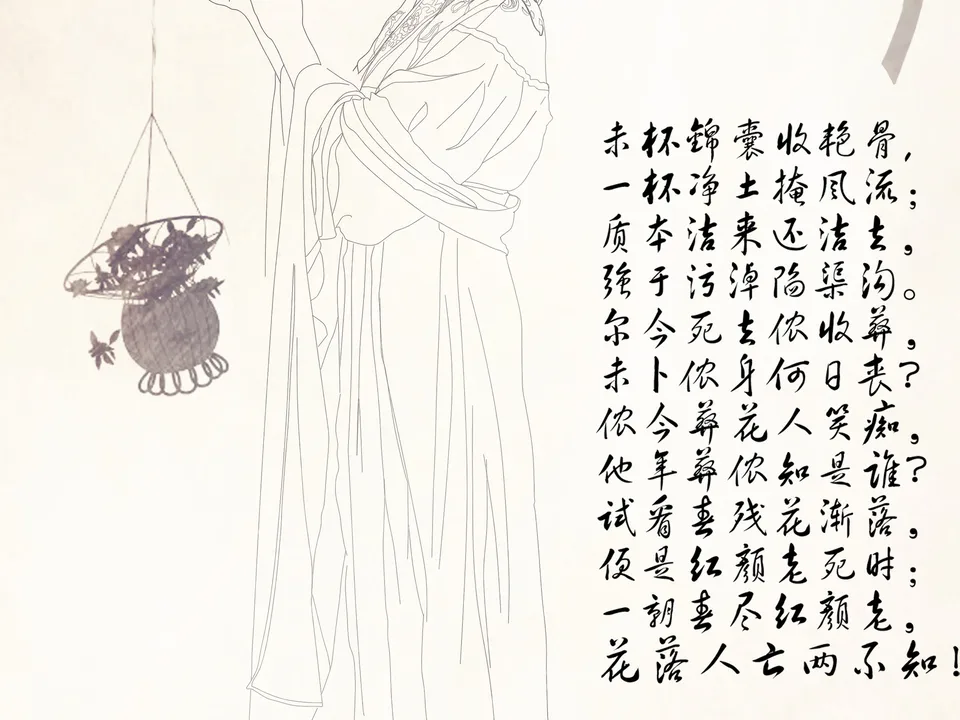 未杯錦囊收艳骨,
一杯净土掩风流;
质本洁来还洁去,
强于污淖陷渠沟。
尔今死去侬收葬,
未卜侬身何日丧?
侬今葬花人笑痴,
他年葬侬知是谁?
试看春残花渐落,
便是红颜老死时;
一朝春尽红颜老,
花落人亡两不知!